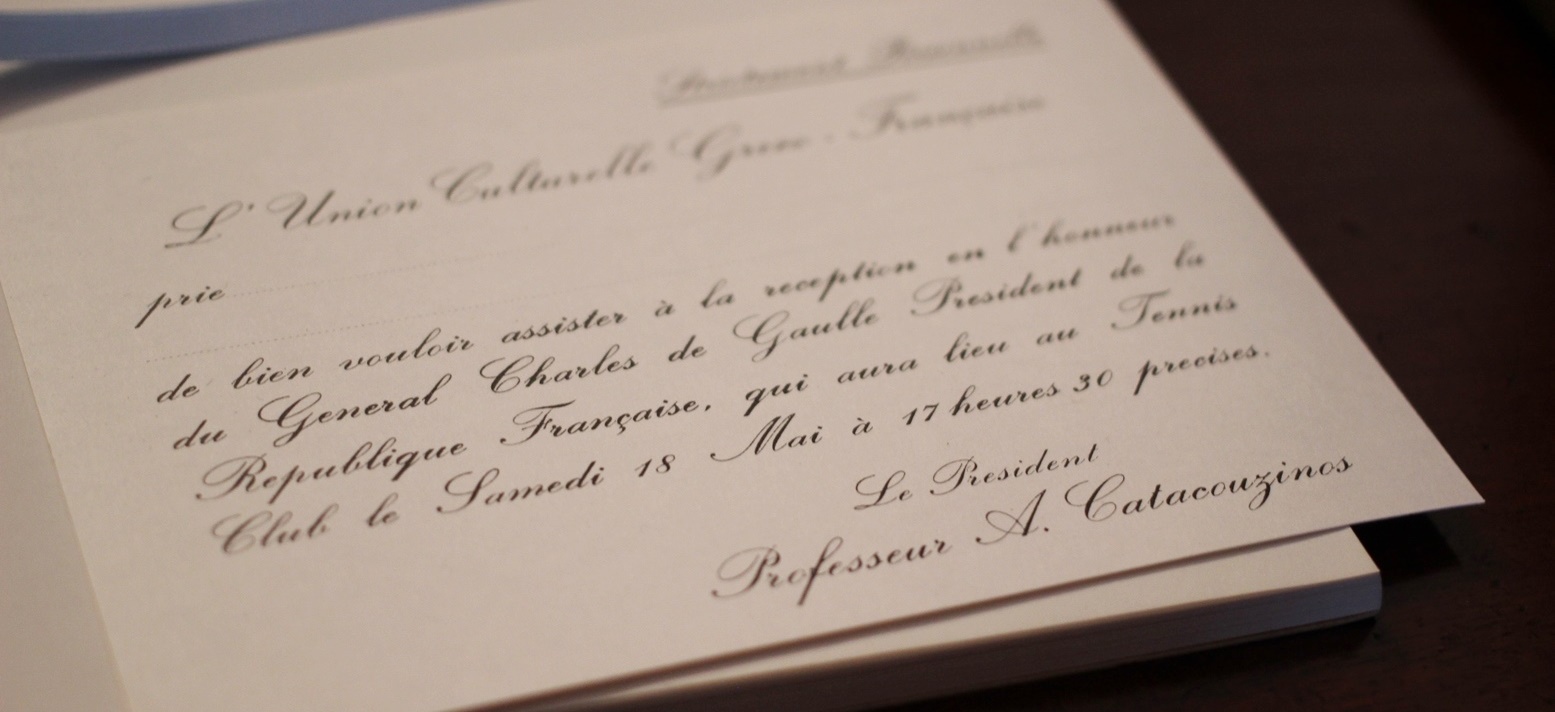 Strictement Personnelle
L' Union Culturelle Greco - Française
prie
de bien vouloir assister à la reception en l'honneur
du General Charles de Gaulle President de la
Republique Française, qui aura lieu au Tennis
Club le Samedi 18 Mai à 17 heures 30 precises.
Le President
Professeur A. Catacouzinos